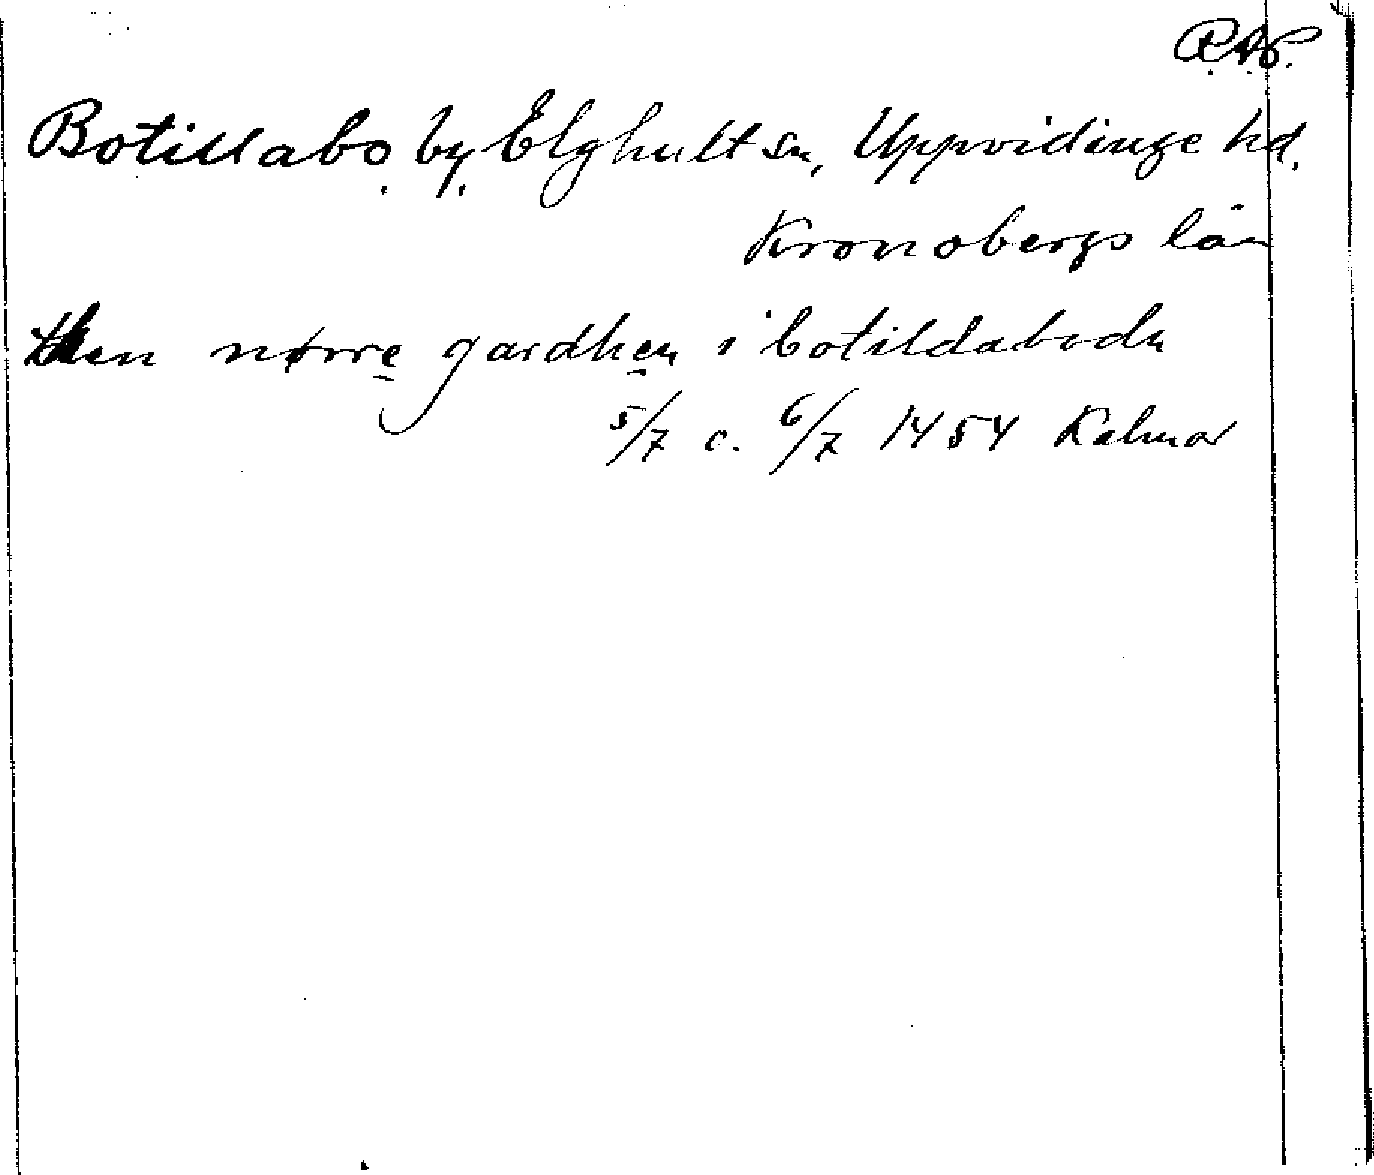 R.A.P.
Botillabo by, Elghult sn, Uppvidinge hd.
Kronobergs län
then nørre gardhen i botildabodu
5/7 c. 6/7 1454 Kalmar